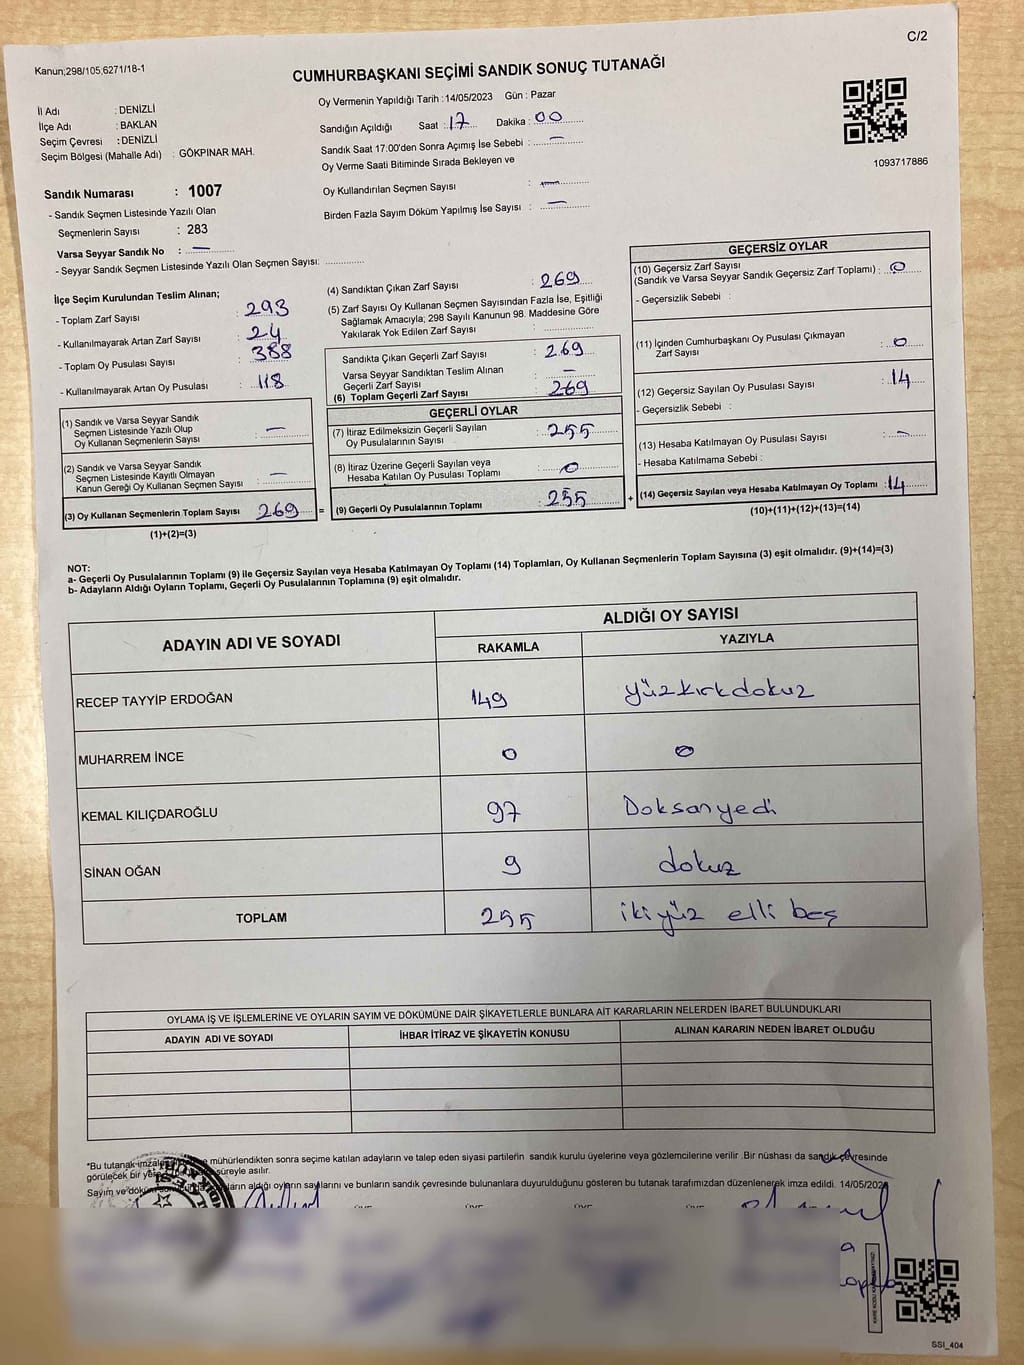 C/2
Kanun;298/105;6271/18-1
CUMHURBAŞKANI SEÇİMİ SANDIK SONUÇ TUTANAĞI
İl Adı : DENİZLİ
İlçe Adı : BAKLAN
Seçim Çevresi : DENİZLİ
Seçim Bölgesi (Mahalle Adı) : GÖKPINAR MAH.
Oy Vermenin Yapıldığı Tarih : 14/05/2023 Gün : Pazar
Sandığın Açıldığı Saat : 17 Dakika : 00
Sandık Saat 17:00'den Sonra Açımış İse Sebebi : —
Oy Verme Saati Bitiminde Sırada Bekleyen ve
Oy Kullandırılan Seçmen Sayısı : —
Birden Fazla Sayım Döküm Yapılmış İse Sayısı : —
1093717886
Sandık Numarası : 1007
- Sandık Seçmen Listesinde Yazılı Olan
Seçmenlerin Sayısı : 283
Varsa Seyyar Sandık No : —
- Seyyar Sandık Seçmen Listesinde Yazılı Olan Seçmen Sayısı:
İlçe Seçim Kurulundan Teslim Alınan;
- Toplam Zarf Sayısı : 293
- Kullanılmayarak Artan Zarf Sayısı : 24
- Toplam Oy Pusulası Sayısı : 388
- Kullanılmayarak Artan Oy Pusulası : 118
(1) Sandık ve Varsa Seyyar Sandık
Seçmen Listesinde Yazılı Olup
Oy Kullanan Seçmenlerin Sayısı : —
(2) Sandık ve Varsa Seyyar Sandık
Seçmen Listesinde Kayıtlı Olmayan
Kanun Gereği Oy Kullanan Seçmen Sayısı : —
(3) Oy Kullanan Seçmenlerin Toplam Sayısı 269 =
(1)+(2)=(3)
(4) Sandıktan Çıkan Zarf Sayısı : 269
(5) Zarf Sayısı Oy Kullanan Seçmen Sayısından Fazla İse, Eşitliği
Sağlamak Amacıyla; 298 Sayılı Kanunun 98. Maddesine Göre
Yakılarak Yok Edilen Zarf Sayısı :
Sandıkta Çıkan Geçerli Zarf Sayısı : 269
Varsa Seyyar Sandıktan Teslim Alınan
Geçerli Zarf Sayısı : —
(6) Toplam Geçerli Zarf Sayısı : 269
GEÇERLİ OYLAR
(7) İtiraz Edilmeksizin Geçerli Sayılan
Oy Pusulalarının Sayısı : 255
(8) İtiraz Üzerine Geçerli Sayılan veya
Hesaba Katılan Oy Pusulası Toplamı : 0
(9) Geçerli Oy Pusulalarının Toplamı : 255 +
GEÇERSİZ OYLAR
(10) Geçersiz Zarf Sayısı
(Sandık ve Varsa Seyyar Sandık Geçersiz Zarf Toplamı) : 0
- Geçersizlik Sebebi :
(11) İçinden Cumhurbaşkanı Oy Pusulası Çıkmayan
Zarf Sayısı : 0
(12) Geçersiz Sayılan Oy Pusulası Sayısı : 14
- Geçersizlik Sebebi :
(13) Hesaba Katılmayan Oy Pusulası Sayısı : —
- Hesaba Katılmama Sebebi :
(14) Geçersiz Sayılan veya Hesaba Katılmayan Oy Toplamı : 14
(10)+(11)+(12)+(13)=(14)
NOT:
a- Geçerli Oy Pusulalarının Toplamı (9) ile Geçersiz Sayılan veya Hesaba Katılmayan Oy Toplamı (14) Toplamları, Oy Kullanan Seçmenlerin Toplam Sayısına (3) eşit olmalıdır. (9)+(14)=(3)
b- Adayların Aldığı Oyların Toplamı, Geçerli Oy Pusulalarının Toplamına (9) eşit olmalıdır.
ADAYIN ADI VE SOYADI ALDIĞI OY SAYISI
RAKAMLA YAZIYLA
RECEP TAYYİP ERDOĞAN 149 yüzkırkdokuz
MUHARREM İNCE 0 0
KEMAL KILIÇDAROĞLU 97 Doksanyedi
SİNAN OĞAN 9 dokuz
TOPLAM 255 ikiyüz elli beş
OYLAMA İŞ VE İŞLEMLERİNE VE OYLARIN SAYIM VE DÖKÜMÜNE DAİR ŞİKAYETLERLE BUNLARA AİT KARARLARIN NELERDEN İBARET BULUNDUKLARI
ADAYIN ADI VE SOYADI İHBAR İTİRAZ VE ŞİKAYETİN KONUSU ALINAN KARARIN NEDEN İBARET OLDUĞU
*Bu tutanak mühürlendikten sonra seçime katılan adayların ve talep eden siyasi partilerin sandık kurulu üyelerine veya gözlemcilerine verilir .Bir nüshası da sandık çevresinde
görülecek bir süreyle asılır.
Sayım ve aldığı oyların sayılarını ve bunların sandık çevresinde bulunanlara duyurulduğunu gösteren bu tutanak tarafımızdan düzenlenerek imza edildi. 14/05/2023
SSI_404